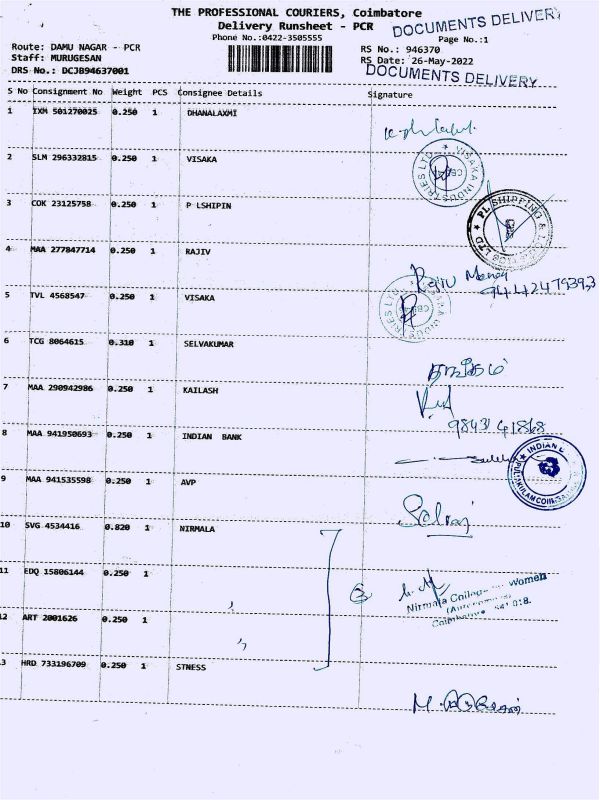 THE PROFESSIONAL COURIERS, Coimbatore
Delivery Runsheet - PCR
DOCUMENTS DELIVERY
Phone No.:0422-3505555
Page No.:1
Route: DAMU NAGAR - PCR
RS No.: 946370
Staff: MURUGESAN
RS Date: 26-May-2022
DRS No.: DCJB94637001
DOCUMENTS DELIVERY
S No Consignment No Weight PCS Consignee Details Signature
1 IXM 501270025 0.250 1 DHANALAXMI
2 SLM 296332815 0.250 1 VISAKA
VISAKA INDUSTRIES LTD
CBE
3 COK 23125758 0.250 1 P LSHIPIN
PL SHIPPING & LTD
4 MAA 277847714 0.250 1 RAJIV
Rajiv
5 TVL 4568547 0.250 1 VISAKA
6 TCG 8064615 0.310 1 SELVAKUMAR
7 MAA 290942986 0.250 1 KAILASH
98431 41868
8 MAA 941950693 0.250 1 INDIAN BANK
INDIAN
9 MAA 941535598 0.250 1 AVP
10 SVG 4534416 0.820 1 NIRMALA
11 EDQ 15806144 0.250 1 ,,
3
Nirmala College Women
(Autonomous)
Coimbatore 641 018.
12 ART 2001626 0.250 1 ,,
3 HRD 733196709 0.250 1 STNESS